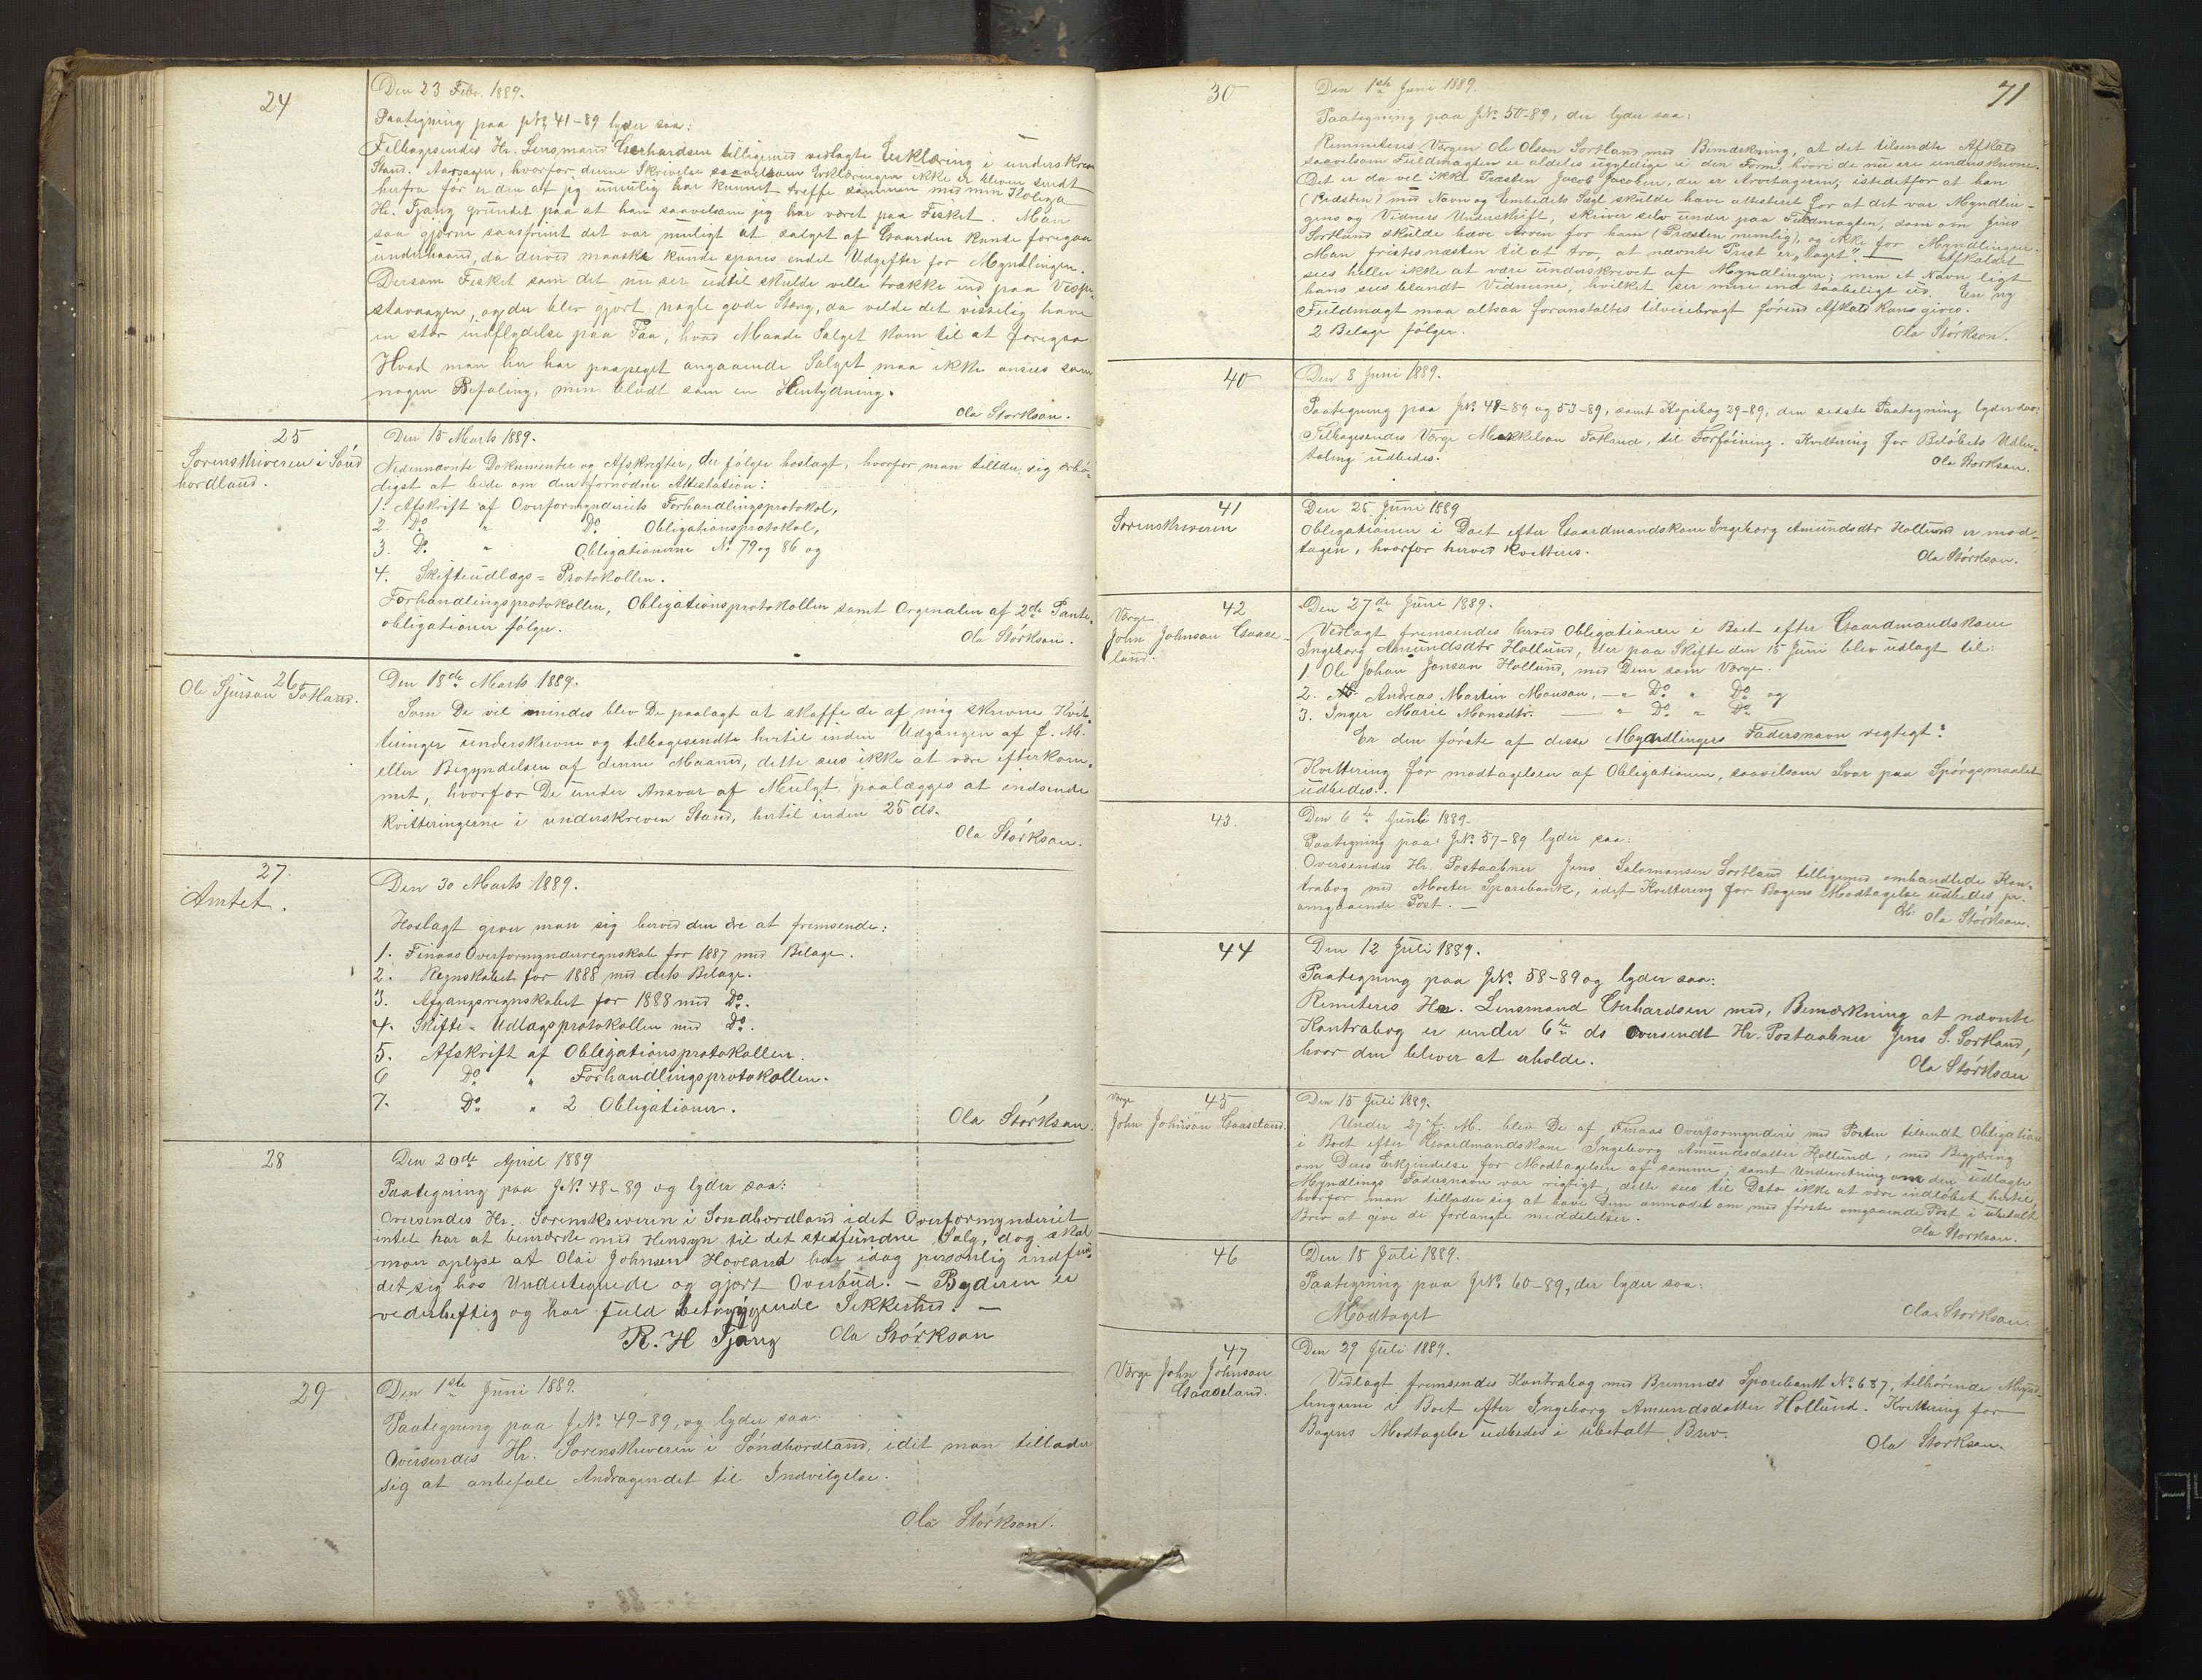 24
Den 23 Febr. 1889.
Paategning paa JN: 41-89 lyder saa:
Tilbagesendes Hr. Lensmand Gerhardsen tilligemed vedlagte Erklæring i underskreven
Stand. Aarsagen, hvorfor denne Skrivelse saavelsom Erklæringen ikke er bleven sendt
herfra før er den at jeg umulig har kunnet treffe sammen med min Kolega
Hr. Tjang grundet paa at han saavelsom jeg har været paa Fisket. Man
saa gjerne saafremt det var muligt at salget af Gaarden kunde foregaa
underhaand, da derved maaske kunde spares endel Udgifter for Myndlingen.
Dersom Fisket som det nu ser udtil skulde ville trække ind paa
stavaagen, og der blev gjort nogle gode Stæng, da vilde det visselig have
en stor indflydelse paa Paa, hvad Maade Salget kom til at foregaa
Hvad man her har paapeget angaaende Salget maa ikke ansees som
nogen Befaling, men blodt som en Hentydning.
Ola Størkson.
25
Sorenskriveren i Sønd
hordland.
Den 15 Marts 1889.
Nedennævnte Dokumenter og Afskrifter, der følger hoslagt, hvorfor man tillader sig ærbø-
digst at bede om den fornødne Attestation:
1. Afskrift af Overformynderiets Forhandlingsprotokol,
2. Do " Do Obligationsprotokol,
3. Do " Obligationerne No 79 og 86 og
4. Skifteudlægs-Protokollen.
Forhandlingsprotokollen, Obligationsprotokollen samt Orginalen af 2de Pante-
obligationer følger.
Ola Størkson.
26
Ole Sjurson Totland.
Den 18de Marts 1889.
Som De vil mindes blev De paalagt at skaffe de af mig skrevne Kvit-
teringer underskrevne og tilbagesendte hertil inden Udgangen af f. M.
eller Begyndelsen af denne Maaned, dette sees ikke at være efterkom-
met, hvorfor De under Ansvar af Mulgt paalægges at indsende
kvitteringerne i underskreven Stand, hertil inden 25 ds.
Ola Størkson.
27.
Amtet.
Den 30 Marts 1889.
Hoslagt giver man sig herved den ære at fremsende:
1. Finaas Overformynderregnskab for 1887 med Bilage.
2. Regnskabet for 1888 med dets Bilage.
3. Afgangsregnskabet for 1888 med Do.
4. Skifte-Udlægsprotokollen med Do.
5. Afskrift af Obligationsprotokollen.
6 Do " Forhandlingsprotokollen.
7. Do " 2 Obligationer.
Ola Størkson.
28
Den 20de April 1889
Paategning paa JN: 48-89 og lyder saa:
Oversendes Hr. Sorenskriveren i Søndhordland idet Overformynderiet
intet har at bemærke med Hensyn til det stedfundne Salg, dog skal
man oplyse at Olai Johnsen Hovland har idag personlig indfun-
det sig hos Undertegnede og gjort Overbud. — Byderen er
vederheftig og har fuld betryggende Sikkerhed. —
R. H Tjang Ola Størkson
29
Den 1ste Juni 1889.
Paategning paa JN: 49-89, og lyder saa:
Oversendes Hr. Sorenskriveren i Søndhordland, idet man tillader
sig at anbefale Andragendet til Indvilgelse.
Ola Størkson.
71
30
Den 1ste Juni 1889.
Paategning paa JN: 50-89, der lyder saa:
Remmiteres Værgen Ole Olson Sortland med Bemærkning, at det tilsendte Afkald
saavelsom Fuldmagten er aldeles ugyldige i den Form, hvori de nu ere underskrevne.
Det er da vel ikke Præsten Jacob Jacobsen, der er Arvetageren; istedetfor at han
(Præsten) med Navn og Embedets Segl skulde have attesteret for at det var Myndlin-
gens og Vidners Underskrift, skriver selv under paa Fuldmagten, som om Jens
Sortland skulde hæve Arven for ham (Præsten nemlig), og ikke for Myndlingen.
Man fristes næsten til at tro, at nævnte Prest er „laget". — Afkaldet
sees heller ikke at være underskrevet af Myndlingen; men et Navn ligt
hans sees blandt Vidnerne, hvilket ser mere end taabeligt ud. En ny
Fuldmagt maa altsaa foranstaltes tilveiebragt førend Afkald kan gives.
2 Bilage følger.
Ola Størkson.
40
Den 8 Juni 1889.
Paategning paa JN: 48-89 og 53-89, samt Kopibog 29-89, den sidste Paategning lyder saa:
Tilbagesendes Værge Mikkelson Totland, til Forføining. Kvittering for Beløbets Udbe-
taling udbedes.
Ola Størkson.
41
Sorenskriveren
Den 25 Juni 1889
Obligationen i Boet efter Gaardmandskone Ingeborg Amundsdtr Hollund er mod-
tagen, hvorfor herved kvitteres.
Ola Størkson.
42
Værge
John Johnson Gaase-
land.
Den 27de Juni 1889.
Vedlagt fremsendes herved Obligationen i Boet efter Gaardmandskone
Ingeborg Amundsdtr Hollund, der paa Skifte den 15 Juni blev udlagt til:
1. Ole Johan Jonson Hollund, med Dem som Værge.
2. Andreas Martin Monson, — " Do " Do og
3. Inger Marie Monsdtr. — " Do " Do
Er den første af disse Myndlingers Fadersnavn rigtigt?
Kvittering for modtagelsen af Obligationen, saavelsom Svar paa Spørgsmaalet
udbedes.
43
Den 6te Juli 1889.
Paategning paa JN: 57-89 lyder saa:
Oversendes Hr. Postaabner Jens Salomonsen Sortland tilligemed omhandlede Kon-
trabog med Moster Sparebank, idet Kvittering for Bogens Modtagelse udbedes pr.
omgaaende Post. —
Ola Størkson.
44
Den 12 Juli 1889.
Paategning paa JN: 58-89 og lyder saa:
Remiteres Hr. Lensmand Gerhardsen med, Bemærkning at nævnte
Kontrabog er under 6te ds oversendt Hr. Postaabner Jens S. Sortland,
hvor den bliver at erholde.
Ola Størkson
45
Værge
John Johnson Gaaseland.
Den 15 Juli 1889.
Under 27 f. M. blev De af Finaas Overformynderi med Posten tilsendt Obligation
i Boet efter Gaardmandskone Ingeborg Amundsdatter Hollund, med Begjæring
om Deres Erkjendelse for Modtagelsen af samme; samt Underretning om den udlagte
Myndlings Fadersnavn var rigtigt, dette sees til Dato ikke at være indløbet hertil,
hvorfor man tillader sig at have Dem anmodet om med første omgaaende Post i ubetalt
Brev at give de forlangte meddelelser.
Ola Størkson.
46
Den 15 Juli 1889.
Paategning paa JN: 60-89, der lyder saa:
Modtaget
Ola Størkson.
47
Værge John Johnson
Gaaseland.
Den 29 Juli 1889.
Vedlagt fremsendes Kontrabog med Bremnes Sparebank No. 687, tilhørende Mynd-
lingerne i Boet efter Ingeborg Amundsdatter Hollund. Kvittering for
Bogens Modtagelse udbedes i ubetalt Brev.
Ola Størkson.